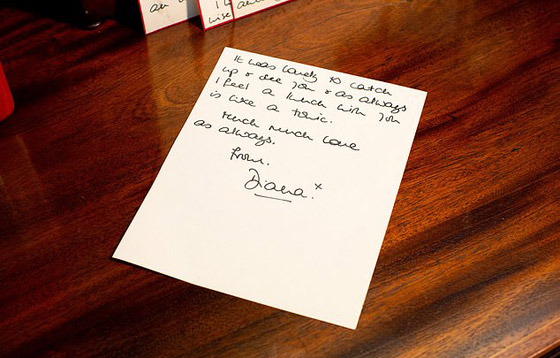 au
I
wise
It was lovely to catch
up & see you & as always
I feel a lunch with you
is like a tonic.
Much much love
as always.
from.
Diana. x